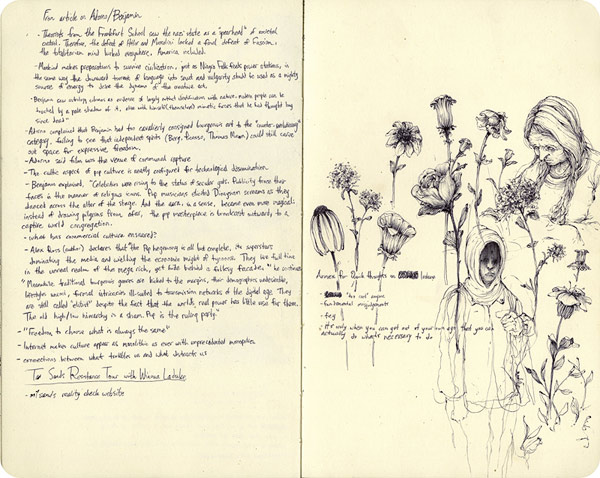 From article on Adorno/Benjamin
- Theorists from the Frankfurt School saw the nazi state as a "spearhead" of societal
control. Therefore, the defeat of Hitler and Mussolini lacked a final defeat of Fascism,
the totalitarian mind lurked everywhere, America included.
- Mankind makes preparations to survive civilization, just as Niagra Falls feeds power stations, in
the same way the downward torrent of language into smut and vulgarity should be used as a mighty
source of energy to drive the dynamo of the creative act.
- Benjamin saw
with nature,
by a pale shadow of it, also with
dead"
- Adorno complained that Benjamin had too cavalierly consigned bourgeois art to the "counter-revolutionary"
category, failing to see that independent spirits (Berg, Picasso, Thomas Mann) could still carve
out space for expressive freedom.
- Adorno said film was the venue of communal rapture
- The cultic aspect of pop culture is neatly configured for technological dissemination.
- Benjamin explained, "Celebrities were rising to the status of secular gods. Publicity froze their
faces in the manner of religious icons. Pop musicians elicited Dionysian screams as they
danced across the altar of the stage. And their aura, in a sense, became even more magical:
instead of drawing pilgrims from afar, the pop masterpiece is broadcast outwardly to a
captive world congregation.
- what has commercial culture ensnared?
- Alex Ross (author) declares that "the Pop hegemony is all but complete, its superstars
dominating the media and wielding the economic might of tycoons. They live full time
in the unreal realm of the mega rich, yet hide behind a folksy facade." he continues
"Meanwhile traditional bourgeois genres are kicked to the margins, their demographics undesirable,
lifestyles uncool, formal intricacies ill suited to transmission networks of the digital age. They
are still called "elitist" despite the fact that the worlds real power has little use for them.
The old high/low hierarchy is a sham: Pop is the ruling party."
- "Freedom to choose what is always the same"
- Internet makes culture appear as monolithic as ever with unprecedented monopolies
- connections between what troubles us and what distracts us
Tar Sands Resistance Tour with Winona Laduke
- reality check website
Annex for thoughts on
"tar sand" engine
- fundamental
-
- It's only when you can get out of your own ego that you can
actually do what's necessary to do